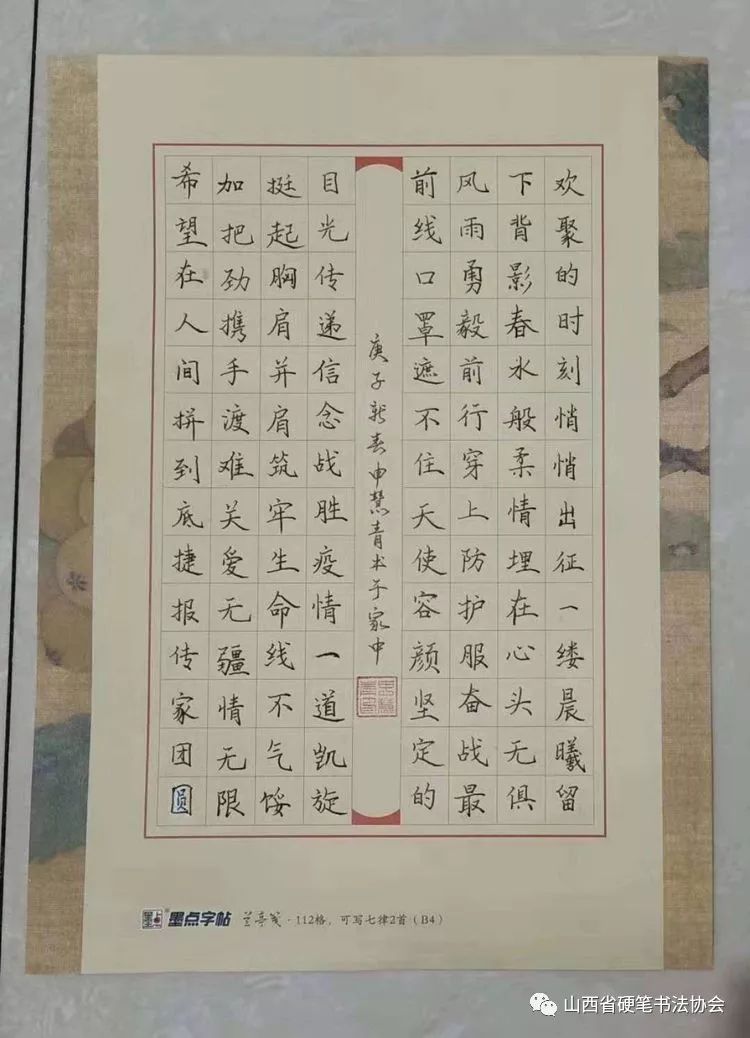 欢聚的时刻悄悄出征一缕晨曦留
下背影春水般柔情埋在心头无俱
风雨勇毅前行穿上防护服奋战最
前线口罩遮不住天使容颜坚定的
庚子新春申慧青书于家中
目光传递信念战胜疫情一道凯旋
挺起胸肩并肩筑牢生命线不气馁
加把劲携手渡难关爱无疆情无限
希望在人间拼到底捷报传家团圆
墨点字帖 兰亭笺·112格，可写七律2首（B4）
山西省硬笔书法协会